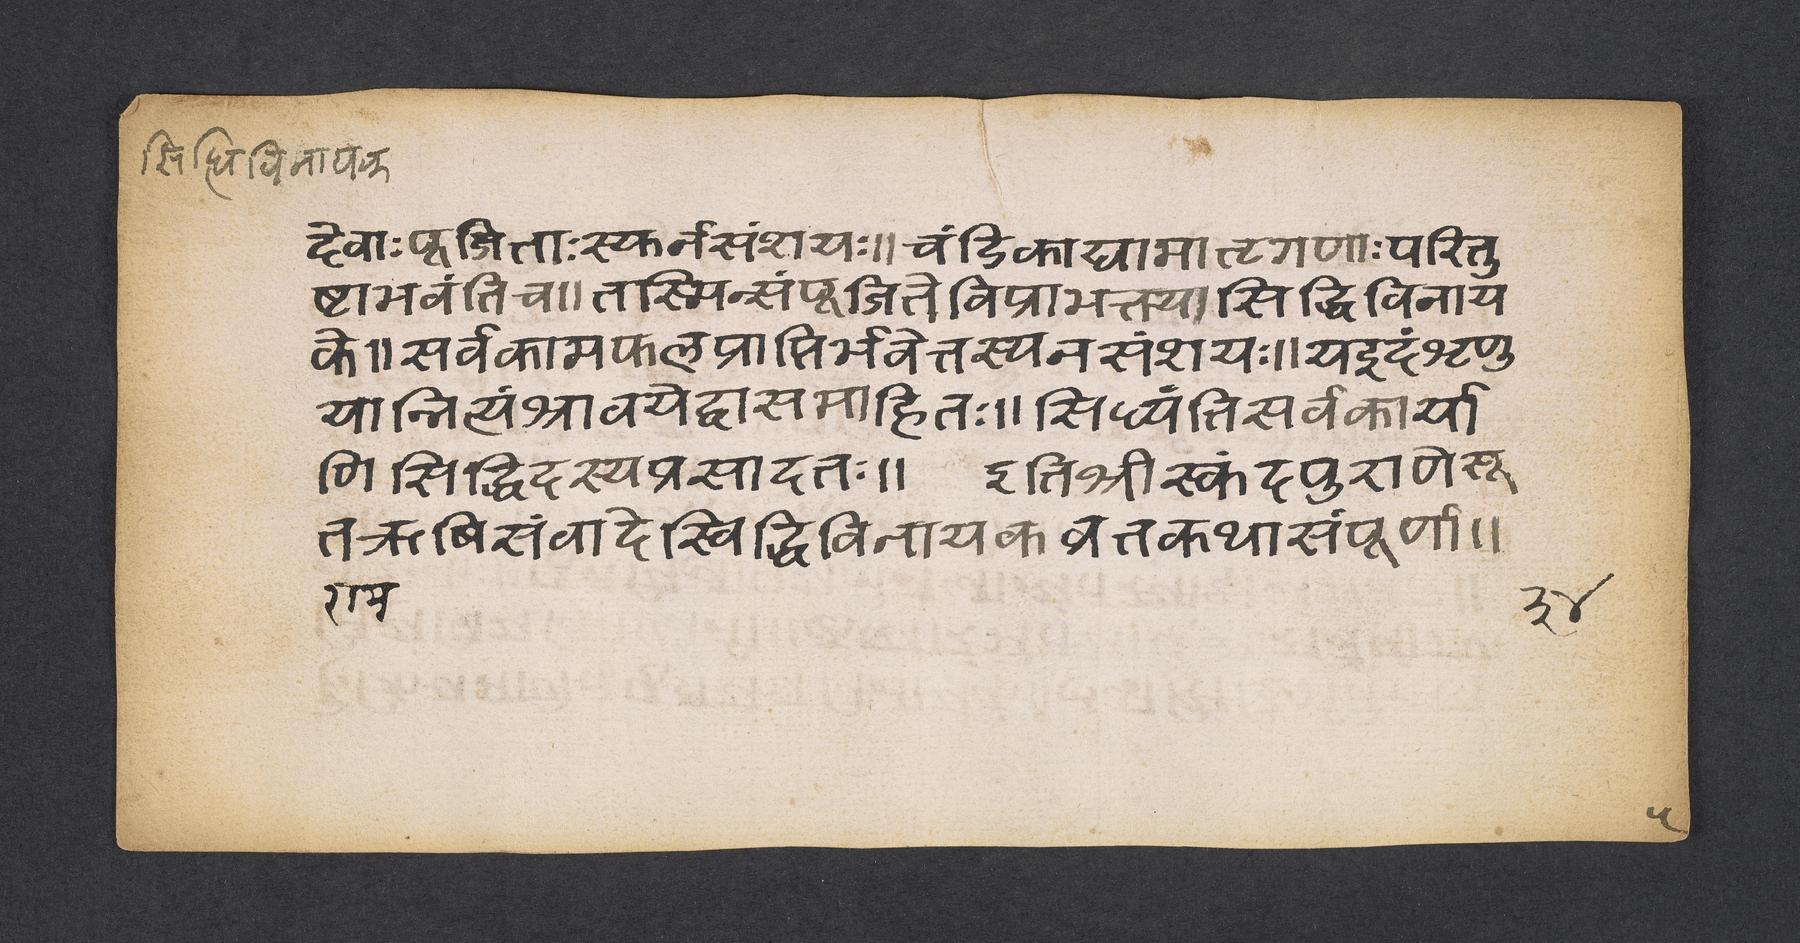 सिधिविनायक
देवाः पूजिताः स्यर्नसंशयः॥ चंडिकाद्यामातृगणाः परितु
ष्टाभवंतिच॥ तास्मिन्संपूजिते विप्राभक्तया सिद्धिविनाय
के॥ सर्वकामफलप्राप्तिर्भवेत्तस्यनसंशयः॥ यइदंशृणु
यान्नित्यंश्रावयेद्वासमाहितः॥ सिध्यंतिसर्वकार्या
णि सिद्धिदस्यप्रसादतः॥ इतिश्रीस्कंदपुराणेसू
तऋषिसंवादेस्विद्धिविनायकव्रतकथासंपूर्णा॥
राम ३४
५